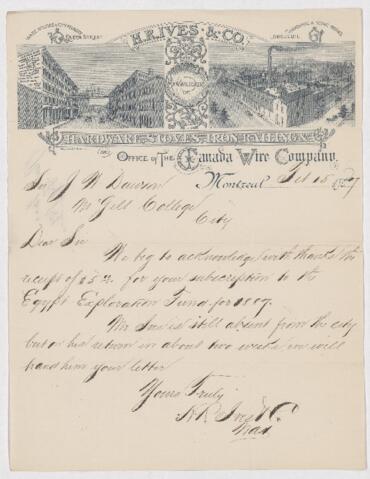 H.R. IVES & CO.
QUEEN STREET
MANUFACTURERS OF
HARDWARE STOVES IRON RAILING &c
OFFICE OF THE Canada Wire Company.
Montreal, Feb 15 1889
Sir J W Dawson
McGill College
City
Dear Sir
We beg to acknowledge with thanks the
receipt of for your subscription to the
Egypt Exploration Fund for 1889.
Mr Ives is still absent from the city
but on his return in about two weeks, we will
hand him your letter
Yours Truly
H R Ives & Co.